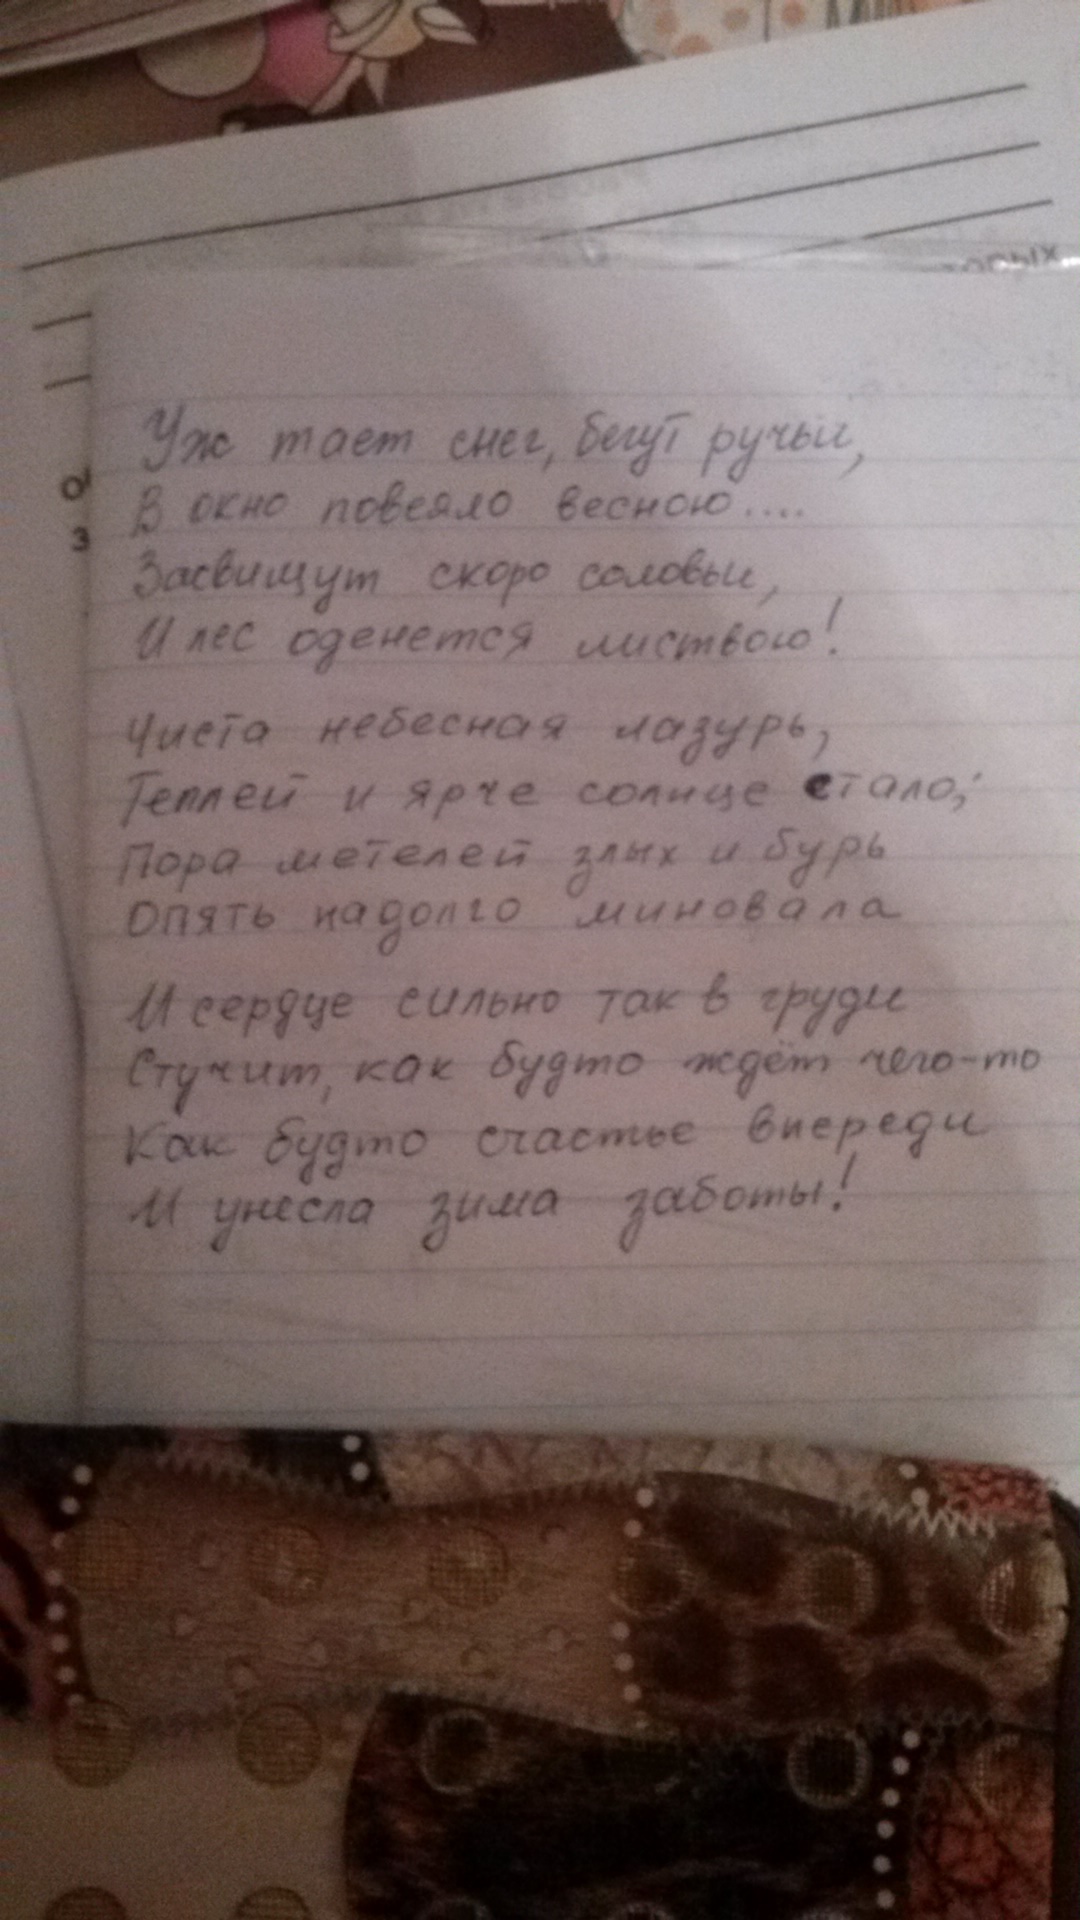 Уж тает снег, бегут ручьи,
В окно повеяло весною....
Засвищут скоро соловьи,
И лес оденется листвою!
Чиста небесная лазурь,
Теплей и ярче солнце стало;
Пора метелей злых и бурь
Опять надолго миновала
И сердце сильно так в груди
Стучит, как будто ждёт чего-то
Как будто счастье впереди
И унесла зима заботы!